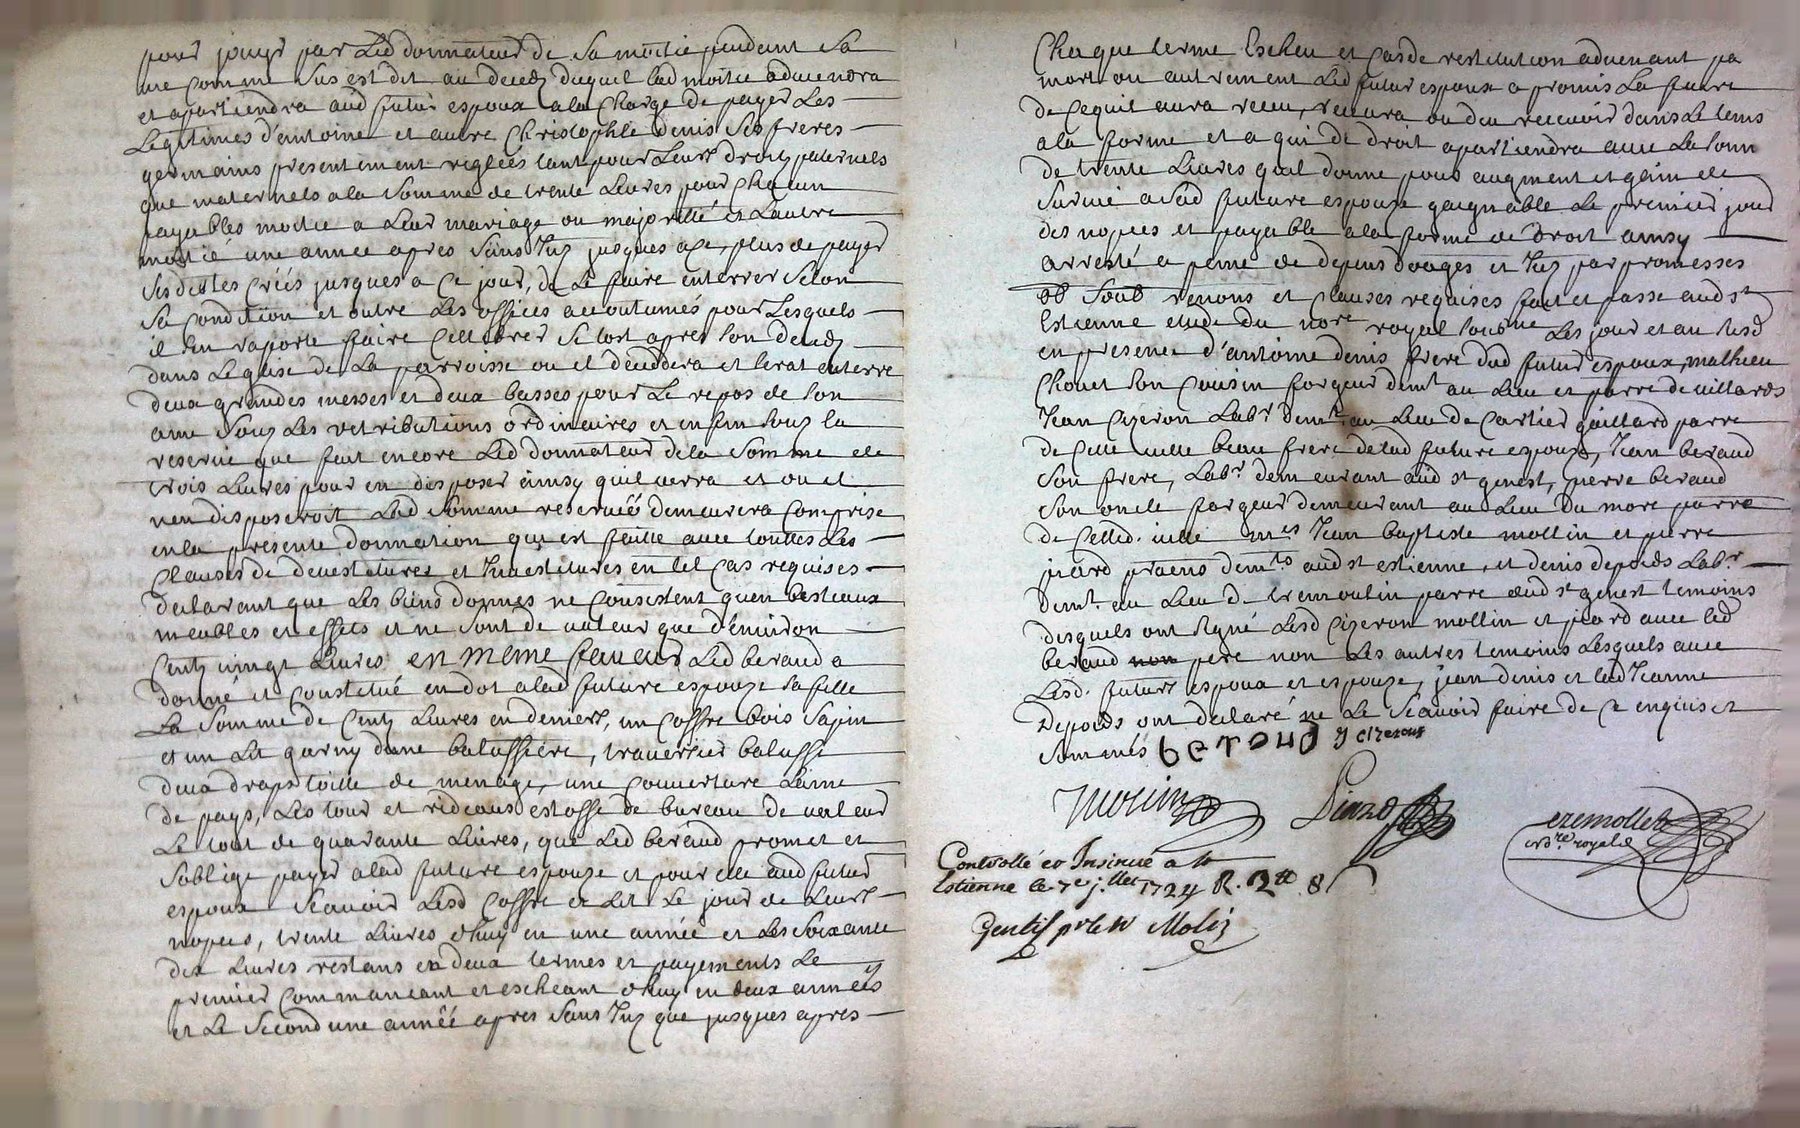 pour jouyr par Led donnateur de Sa moitie pendant Sa
vie comme Sus est dit au deceds duquel lad moitie adviendra
et apartiendra aud futur espoux a la Charge de payer Les
Legitimes d'antoine et autre Christophle denis Ses freres
germains presentement reglées tant pour Leurs droits paternels
que maternels a la Somme de trente Livres pour chacun
payables moitie a Leur mariage ou majorité et Lautre
moitié une année apres Sans Ints jusques a ce, plus de payer
Ses dettes créés jusques a Ce jour, de Le faire enterrer Selon
Sa Condition et outre Les offices accoutumés pour Lesquels
il Sen raporte faire Cellebrer Si tost apres Son deceds
dans Leglise de La parroisse ou il deceddera et Serat enterré
deux grandes messes et deux basses pour Le repos de Son
ame Souz Les retributions ordinaires et enfin Souz la
reserve que fait encore Led donnateur de la Somme de
trois Livres pour en disposer ainsy quil verra et ou il
nen disposeroit Lad Somme reservée demeurera Comprise
en la presente donnation qui est faitte avec touttes Les
Clauses de devestitures et Investitures en tel Cas requises
declarant que Les biens donnés ne Consistent quen bestiaux
meubles et effets et ne Sont de valeur que d'environ
Cent vingt Livres en meme faveur Led beraud a
donné et Constitué en dot a lad future espouze Sa fille
La Somme de Cent Livres en deniers, un Coffre bois Sapin
et un Lit garny dune balassiere, traversier balasse
deux draps toille de menage, une Couverture Laine
de pays, Les tour et rideaux estoffe de bureau de valeur
Le tout de quarante Livres, que Led beraud promet et
Soblige payer a lad future espouze et pour elle aud futur
espoux Scavoir Lesd Coffre et Lit Le jour de Leurs
nopces, trente Livres dhuy en une année et Les Soixante
dix Livres restans en deux termes et payements Le
premier Commancant et escheant dhuy en deux années
et Le Second une année apres Sans Ints que jusques apres
Chaque terme Escheu et Cas de restitution advenant par
mort ou autrement Led futur espoux a promis La faire
de Cequil aura receu, recevra ou deu recevoir dans Le tems
a la forme et a qui de droit apartiendra avec La Som
de trente Livres quil donne pour augment et gain de
Survie a Sad future espouze gaignable Le premier jour
des nopces et payable a la forme de droit ainsy
arresté a peine de depens domages et Ints par promesses
ob Soub renons et clauses requises fait et passé aud St
Estienne etude du nore royal Sousne Les jour et an Susd
en presence d'antoine denis frere dud futur espoux, mathieu
Chouet Son Cousin forgeur demt au Lieu et parre de villards
Jean Cizeron Labr demt au Lieu de Cartier gaillard parre
de Cette ville beau frere de lad future espouze, Jean beraud
Son frere, Labr demeurant aud st genest, pierre beraud
Son oncle forgeur demeurant au Lieu du more parre
de Cetted. ville mes Jean baptiste mollin et pierre
picard pratiens demts aud st estienne, et denis depeids Labr
demt au Lieu de tremoulin parre dud st genest temoins
desquels ont Signé Lesd Cizeron mollin et picard avec led
beraud pere non Les autres temoins Lesquels avec
Lesd. futurs espoux et espouze, jean denis et lad Jeanne
depeids ont declaré ne Le Scavoir faire de ce enquis et
Sommés beraud J Cizeron
Molin
eremollet
nore royal
Controllé et Insinué a St
Estienne le 7e jllet 1724 R. 8s
Gentil pr le Sr Molin